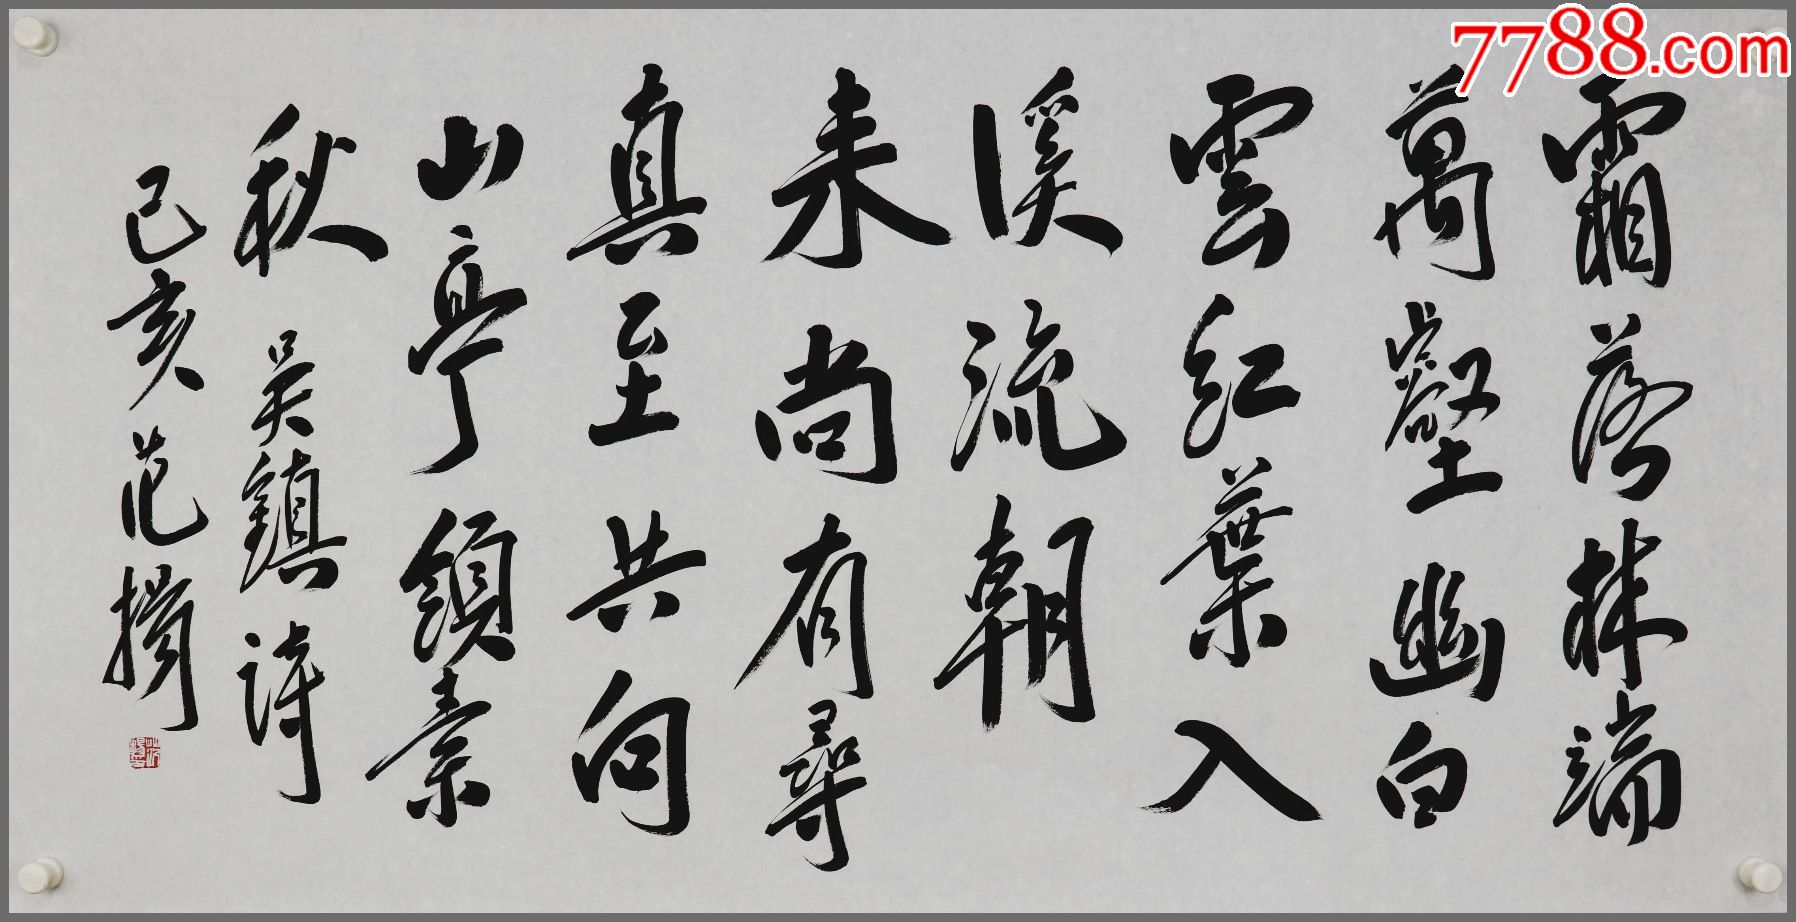 7788.com
霜落林端
萬壑幽白
雲紅葉入
溪流朝
来尚有尋
真至共向
山亭領素
秋 吳鎮詩
己亥 范